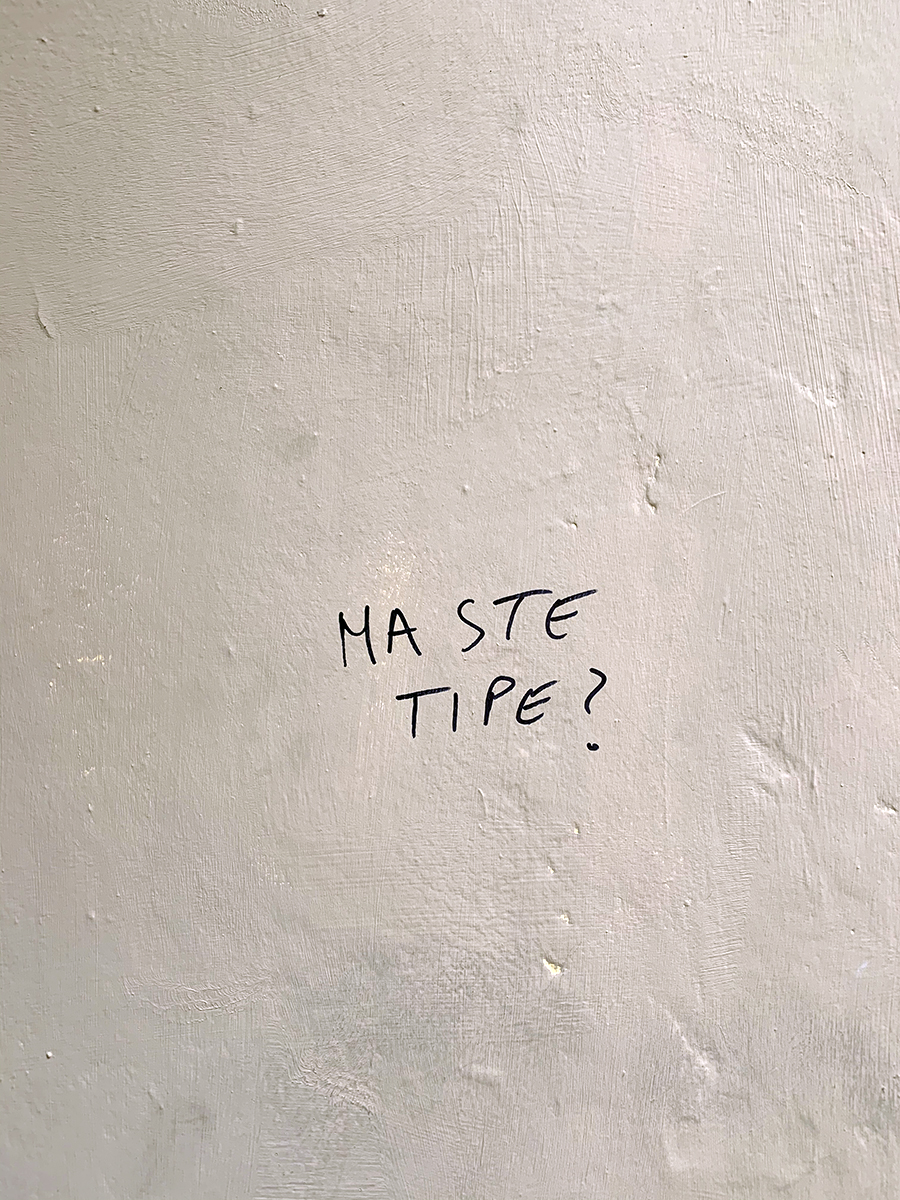 MA STE
TIPE?